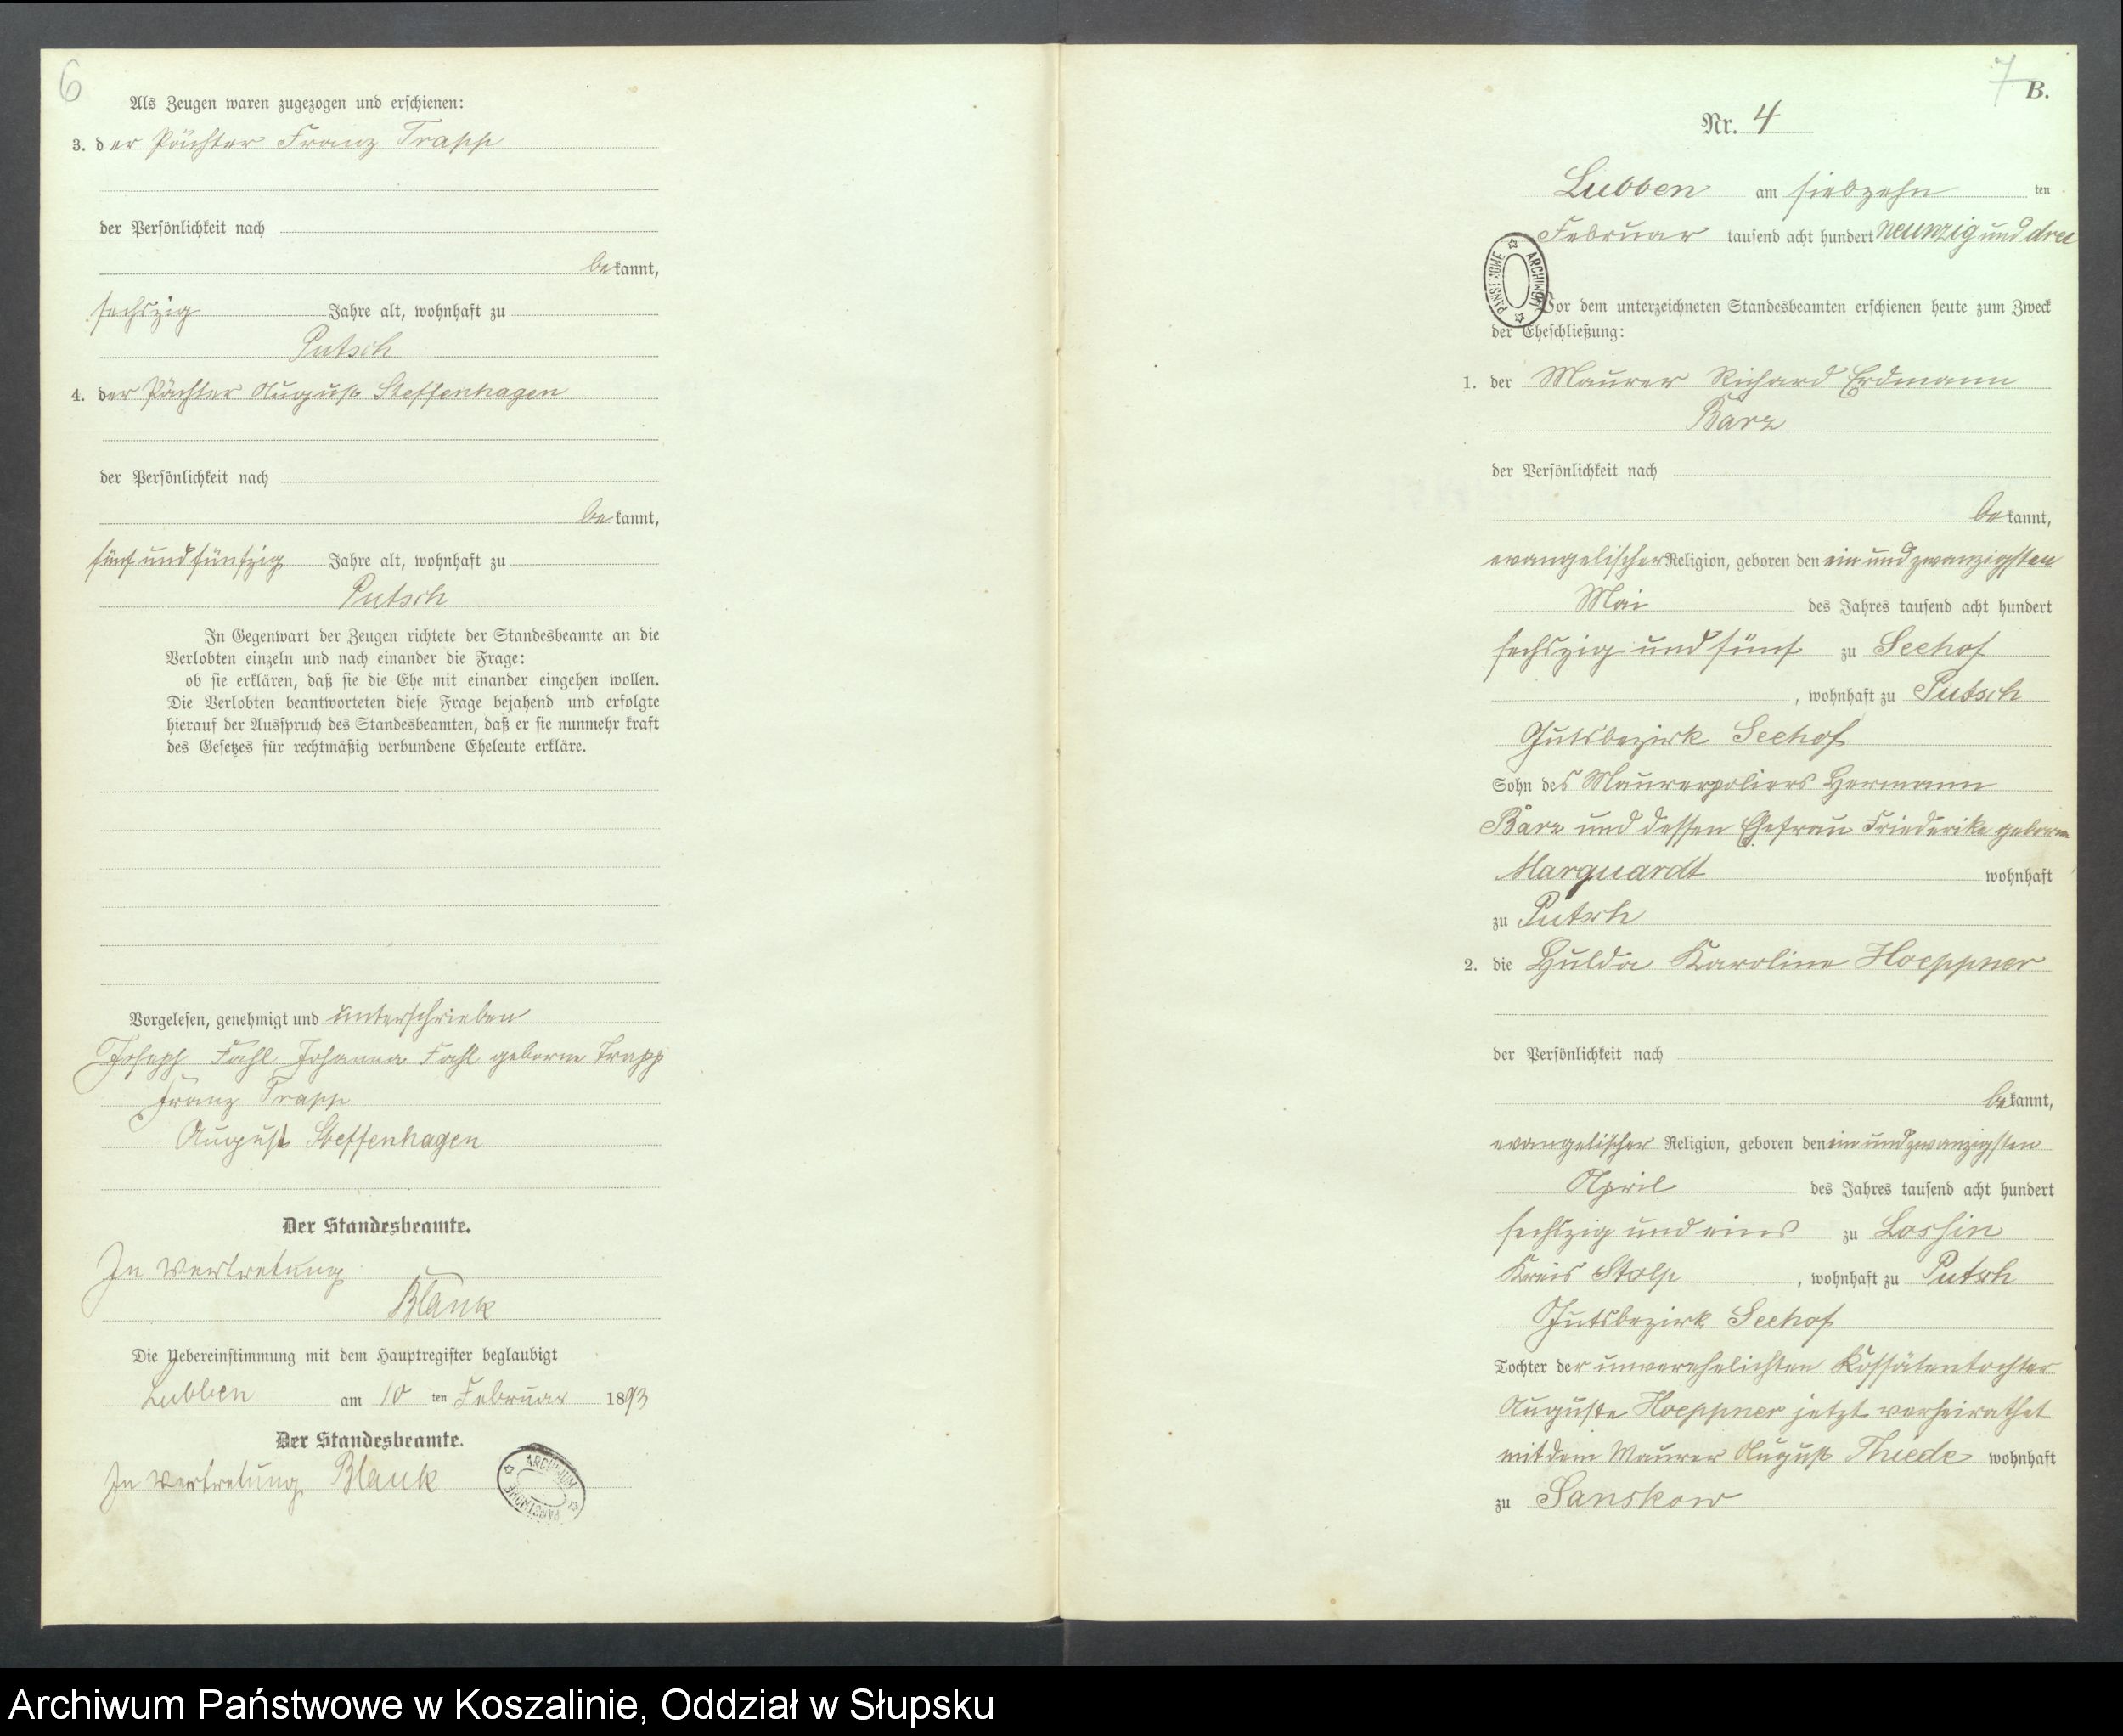 6
Als Zeugen waren zugezogen und erschienen:
3. der Pächter Franz Trapp
der Persönlichkeit nach
bekannt,
sechszig Jahre alt, wohnhaft zu
Putsch
4. der Pächter August Steffenhagen
der Persönlichkeit nach
bekannt,
fünf und fünfzig Jahre alt, wohnhaft zu
Putsch
In Gegenwart der Zeugen richtete der Standesbeamte an die
Verlobten einzeln und nach einander die Frage:
ob sie erklären, daß sie die Ehe mit einander eingehen wollen.
Die Verlobten beantworteten diese Frage bejahend und erfolgte
hierauf der Ausspruch des Standesbeamten, daß er sie nunmehr kraft
des Gesetzes für rechtmäßig verbundene Eheleute erkläre.
Vorgelesen, genehmigt und unterschrieben
Joseph Fahl Johanna Fahl geborne Trapp
Franz Trapp
August Steffenhagen
Der Standesbeamte.
In Vertretung
Blank
Die Uebereinstimmung mit dem Hauptregister beglaubigt
Lubben am 10 ten Februar 1893
Der Standesbeamte.
In Vertretung Blank
ARCHIWUM PAŃSTWOWE
7 B.
Nr. 4
Lubben am siebzehn ten
Februar tausend acht hundert neunzig und drei
ARCHIWUM PAŃSTWOWE
Vor dem unterzeichneten Standesbeamten erschienen heute zum Zweck
der Eheschließung:
1. der Maurer Richard Erdmann
Barz
der Persönlichkeit nach
bekannt,
evangelischer Religion, geboren den ein und zwanzigsten
Mai des Jahres tausend acht hundert
sechszig und fünf zu Seehof
, wohnhaft zu Putsch
Gutsbezirk Seehof
Sohn des Maurerpoliers Hermann
Barz und dessen Ehefrau Friederike geborne
Marquardt wohnhaft
zu Putsch
2. die Hulda Karoline Hoeppner
der Persönlichkeit nach
bekannt,
evangelischer Religion, geboren den ein und zwanzigsten
April des Jahres tausend acht hundert
sechszig und eins zu Lossin
Kreis Stolp , wohnhaft zu Putsch
Gutsbezirk Seehof
Tochter der unverehelichten Kossätentochter
Auguste Hoeppner jetzt verheirathet
mit dem Maurer August Thiede wohnhaft
zu Sanskow
Archiwum Państwowe w Koszalinie, Oddział w Słupsku